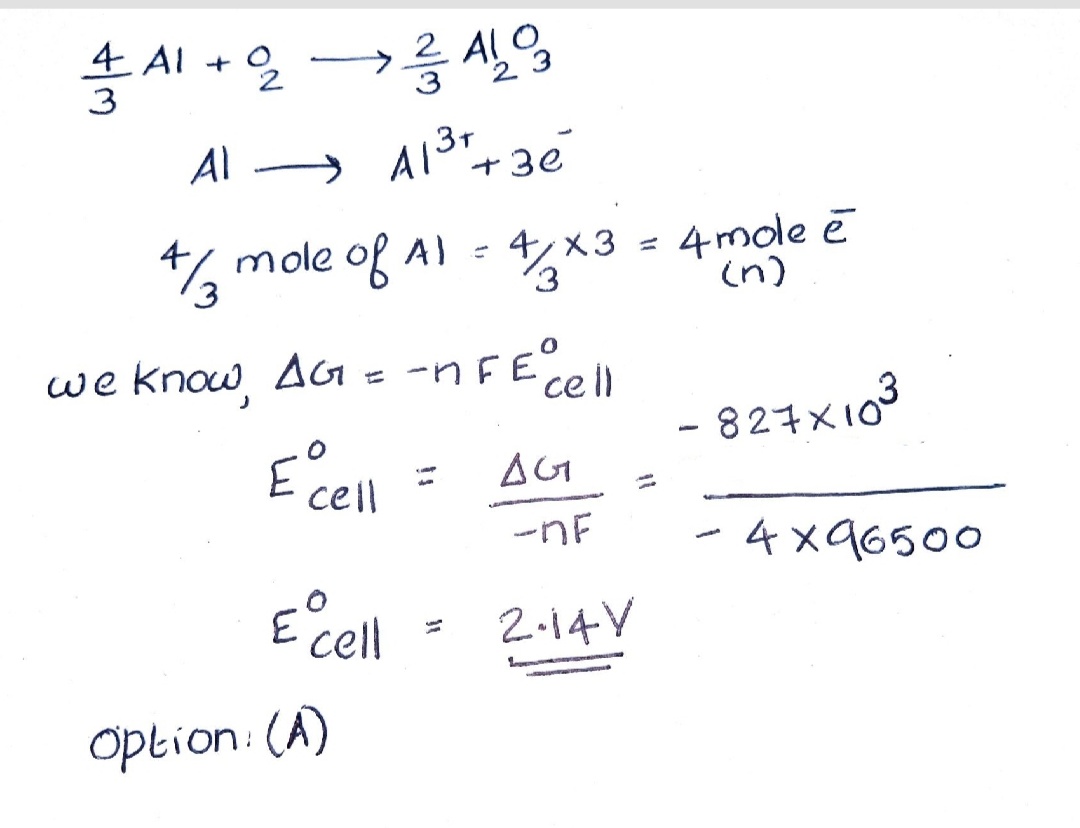 4/3 Al + O₂ → 2/3 Al₂O₃
Al → Al³⁺ + 3e⁻
4/3 mole of Al = 4/3 × 3 = 4 mole e⁻
(n)
we know, ΔG = -nFE°cell
E°cell = ΔG/-nF = -827×10³/-4×96500
E°cell = 2.14V
option: (A)